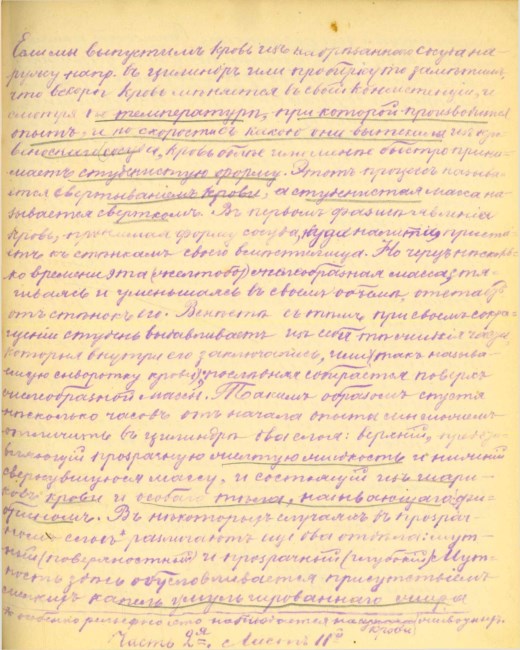 Если мы выпустимъ кровь изъ надрѣзаннаго сосуда на-
ружу напр. въ цилиндръ или пробирку то замѣтимъ,
что вскорѣ кровь мѣняется въ своей консистенціи, и
смотря по температурѣ, при которой производится
опытъ, и по скоростью какою она вытекла изъ кро-
веноснаго сосуда, кровь болѣе или менѣе быстро прини-
маетъ студенистую форму. Этотъ процессъ назыв-
ается свертываніемъ крови, а студенистая масса на-
зывается сверткомъ. Въ первомъ фазисѣ явленія
кровь, принимая форму сосуда, куда налита, приста-
етъ къ стѣнкамъ своего вмѣстилища. Но черезъ нѣсколь-
ко времени эта (желтоватая) желеобразная масса, стя-
гиваясь и уменьшаясь въ своемъ объемѣ, отстаетъ
отъ стѣнокъ его. Вмѣстѣ съ тѣмъ, при своемъ сокра-
щеніи студень выдавливаетъ изъ себя жидкія части,
которыя внутри его заключались, (такъ называ-
емую сыворотку крови), послѣдняя собирается поверхъ
желеобразной массы. Такимъ образомъ спустя
нѣсколько часовъ отъ начала опыта мы можемъ
отличить въ цилиндрѣ два слоя: верхній, представ-
ляющій прозрачную желтую жидкость и нижній
свернувшуюся массу, и состоящій изъ шари-
ковъ крови и особаго тѣла, называющагося фи-
бриномъ. Въ нѣкоторыхъ случаяхъ въ прозрач-
номъ слоѣ различаютъ еще два отдѣла: мут-
ный (поверхностный) и прозрачный (глубокій). Мут-
ность здѣсь обусловливается присутствіемъ
мелкихъ капель эмульгированнаго жира
и особенно рельефно это наблюдается на крови
Часть 2я, Листъ 11й